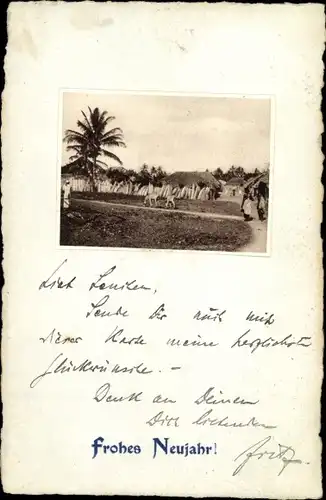 Lieb Lenchen,
Sende Dir auch mit
dieser Karte meine herzlichsten
Glückwünsche. -
Denk an Deinen
Dich liebenden
Fritz
Frohes Neujahr!